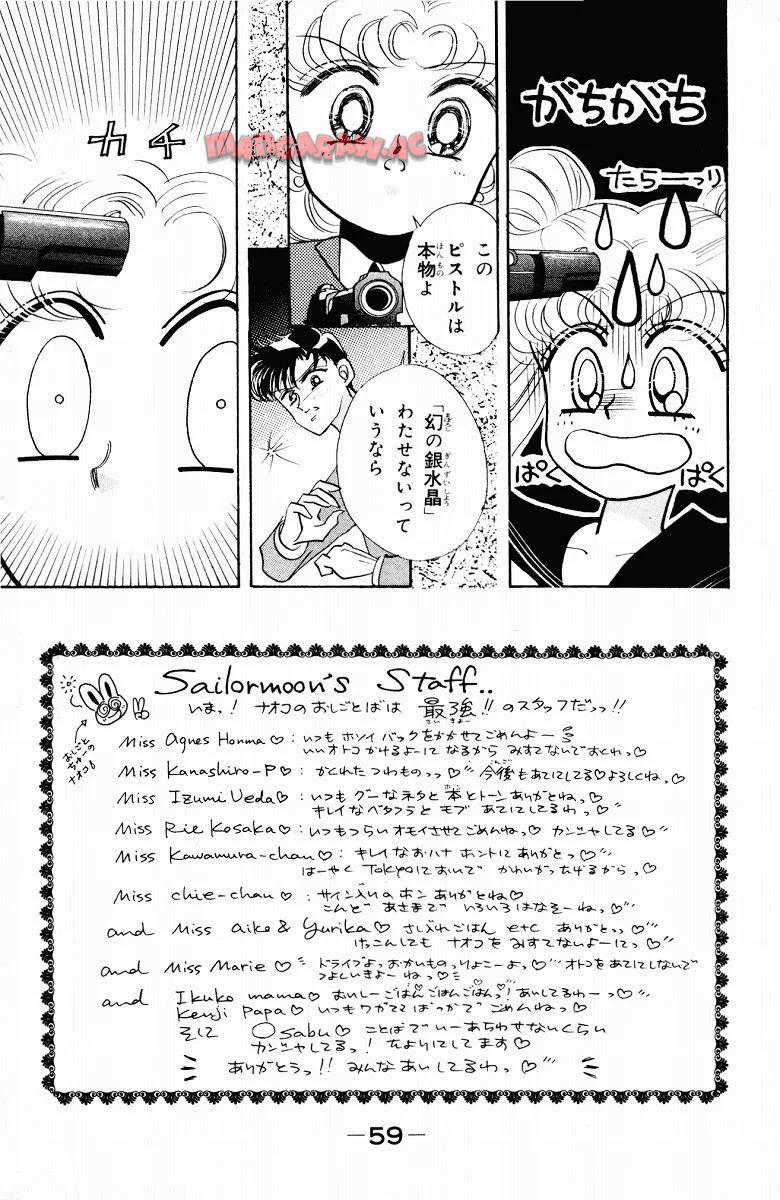 がちがち
たらーっり
ぱく
ぱく
この
ピストルは
本物よ
ほんもの
「幻の銀水晶」
まぼろし ぎんずいしょう
わたせないって
いうなら
カチ
MANGARAW.AC
Sailormoon's Staff..
いまっ! ナオコのおしごとばは 最強!! のスタッフだっっ!!
さいきょう
おしごと
ちゅーの
ナオコ
Miss Agnes Honma♡: いつも ホソイ バックを かかせて ごめんよー
いいオトコ かけるよーに なるから みすてないで おくれっ♡
Miss Kanashiro-P♡: かくれた つわものっっ♡ 今後も あてにしてる♡ よろしくねっ♡
こんご
Miss Izumi Ueda♡: いつも グーなネタと 本とトーン ありがとねっ♡
キレイな ベタフラと モブ あてにしてるっ♡
Miss Rie Kosaka♡: いつも つらい オモイさせて ごめんねっ♡ カンシャしてる♡
Miss Kawamura-chan♡: キレイなおハナ ホントに ありがとっ♡
はーやく Tokyoに おいで かわいがったげるからっ♡
Miss chie-chan♡: サイン入りの ホン ありがとね♡
こんど あさまで いろいろ はなそーねっ♡
and Miss Aiko & Yurika♡ さしいれ ごはん etc ありがとっっ
けっこんしても ナオコを みすてないよーにっ♡
and Miss Marie♡ ドライブよっ おかいものっ りょこーよっ♡ オトコを あてにしないで
つよしいきよーねっ♡
and Ikuko mama♡ おいしーごはん♡ごはん♡ごはんっ♡! あいしてるわーっ♡
Kenji papa♡ いつも ワガママ ばっかで ごめんねっ♡
そして Osabu♡ ことばで いーあらわせないくらい
カンシャしてるっ! たよりにしてます♡
ありがとうっ!! みんな あいしてるわっ♡
—59—